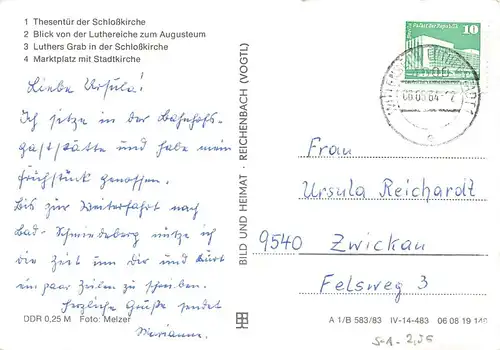 1 Thesentür der Schloßkirche
2 Blick von der Luthereiche zum Augusteum
3 Luthers Grab in der Schloßkirche
4 Marktplatz mit Stadtkirche
Liebe Ursula!
Ich sitze in der Bahnhofs-
gaststätte und habe mein
Frühstück genossen.
Bis zur Weiterfahrt nach
Bad-Schmiedeberg nütze ich
die Zeit um Dir und Kurt
ein paar Zeilen zu schreiben.
Herzliche Grüße sendet
Marianne.
DDR 0,25 M Foto: Melzer
BILD UND HEIMAT · REICHENBACH (VOGTL)
Palast der Republik
10
LUTHERSTADT
Frau
Ursula Reichardt
9540 Zwickau
Felsweg 3
A 1/B 583/83 IV-14-483 06 08 19 148